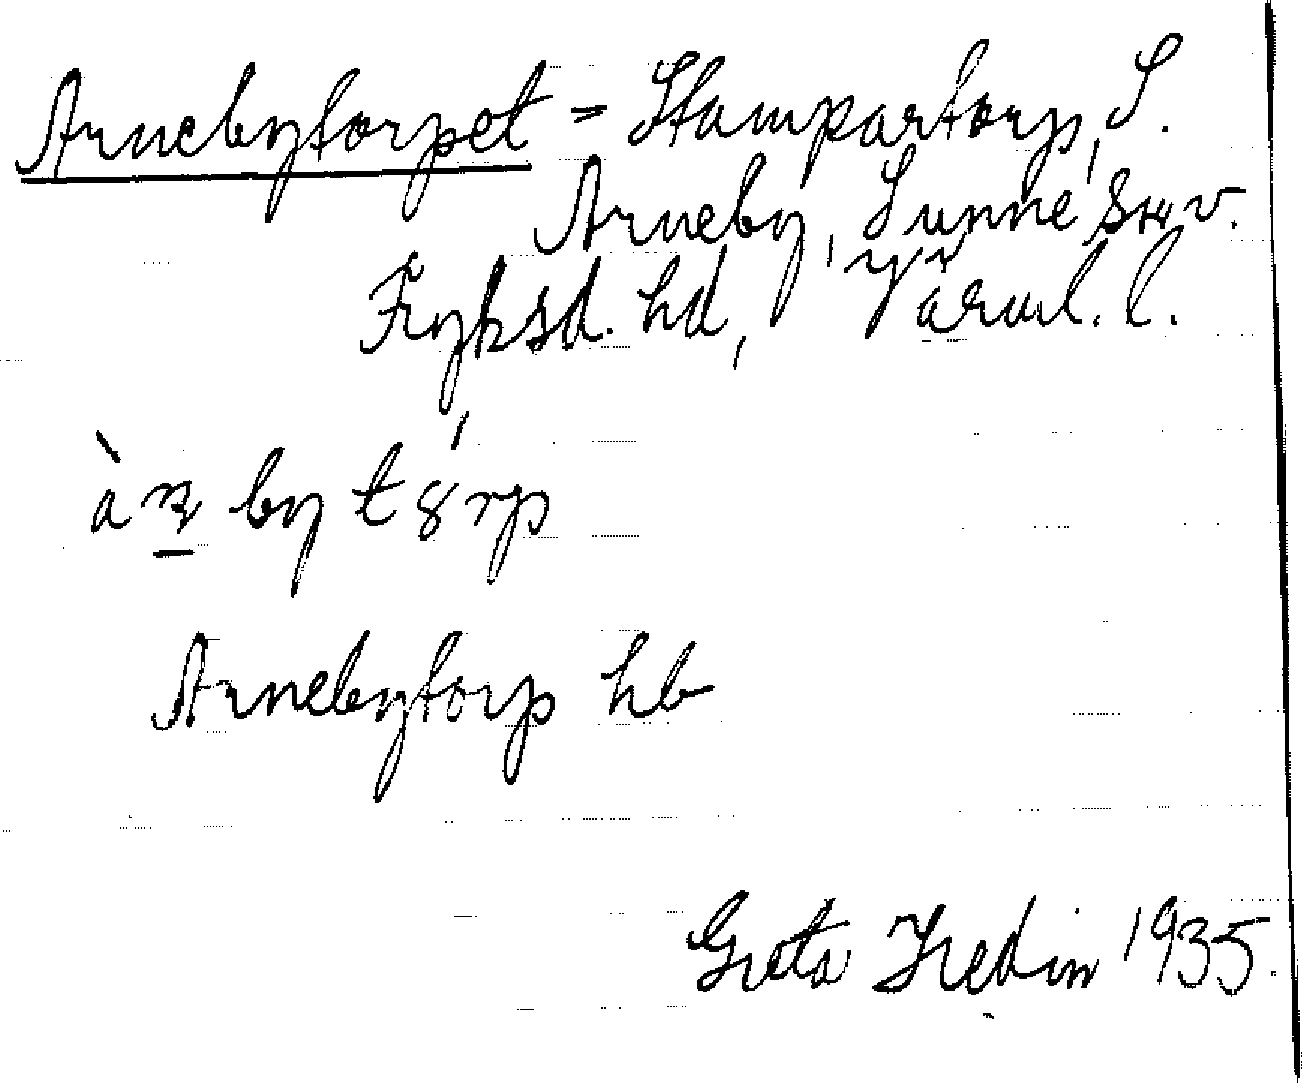 Arnebytorpet = Stampartorp, S.
Arneby, Sunne skv.
Fryksd. hd, Värml. l.
Arnebytorp hb
Greta Hedin 1935.